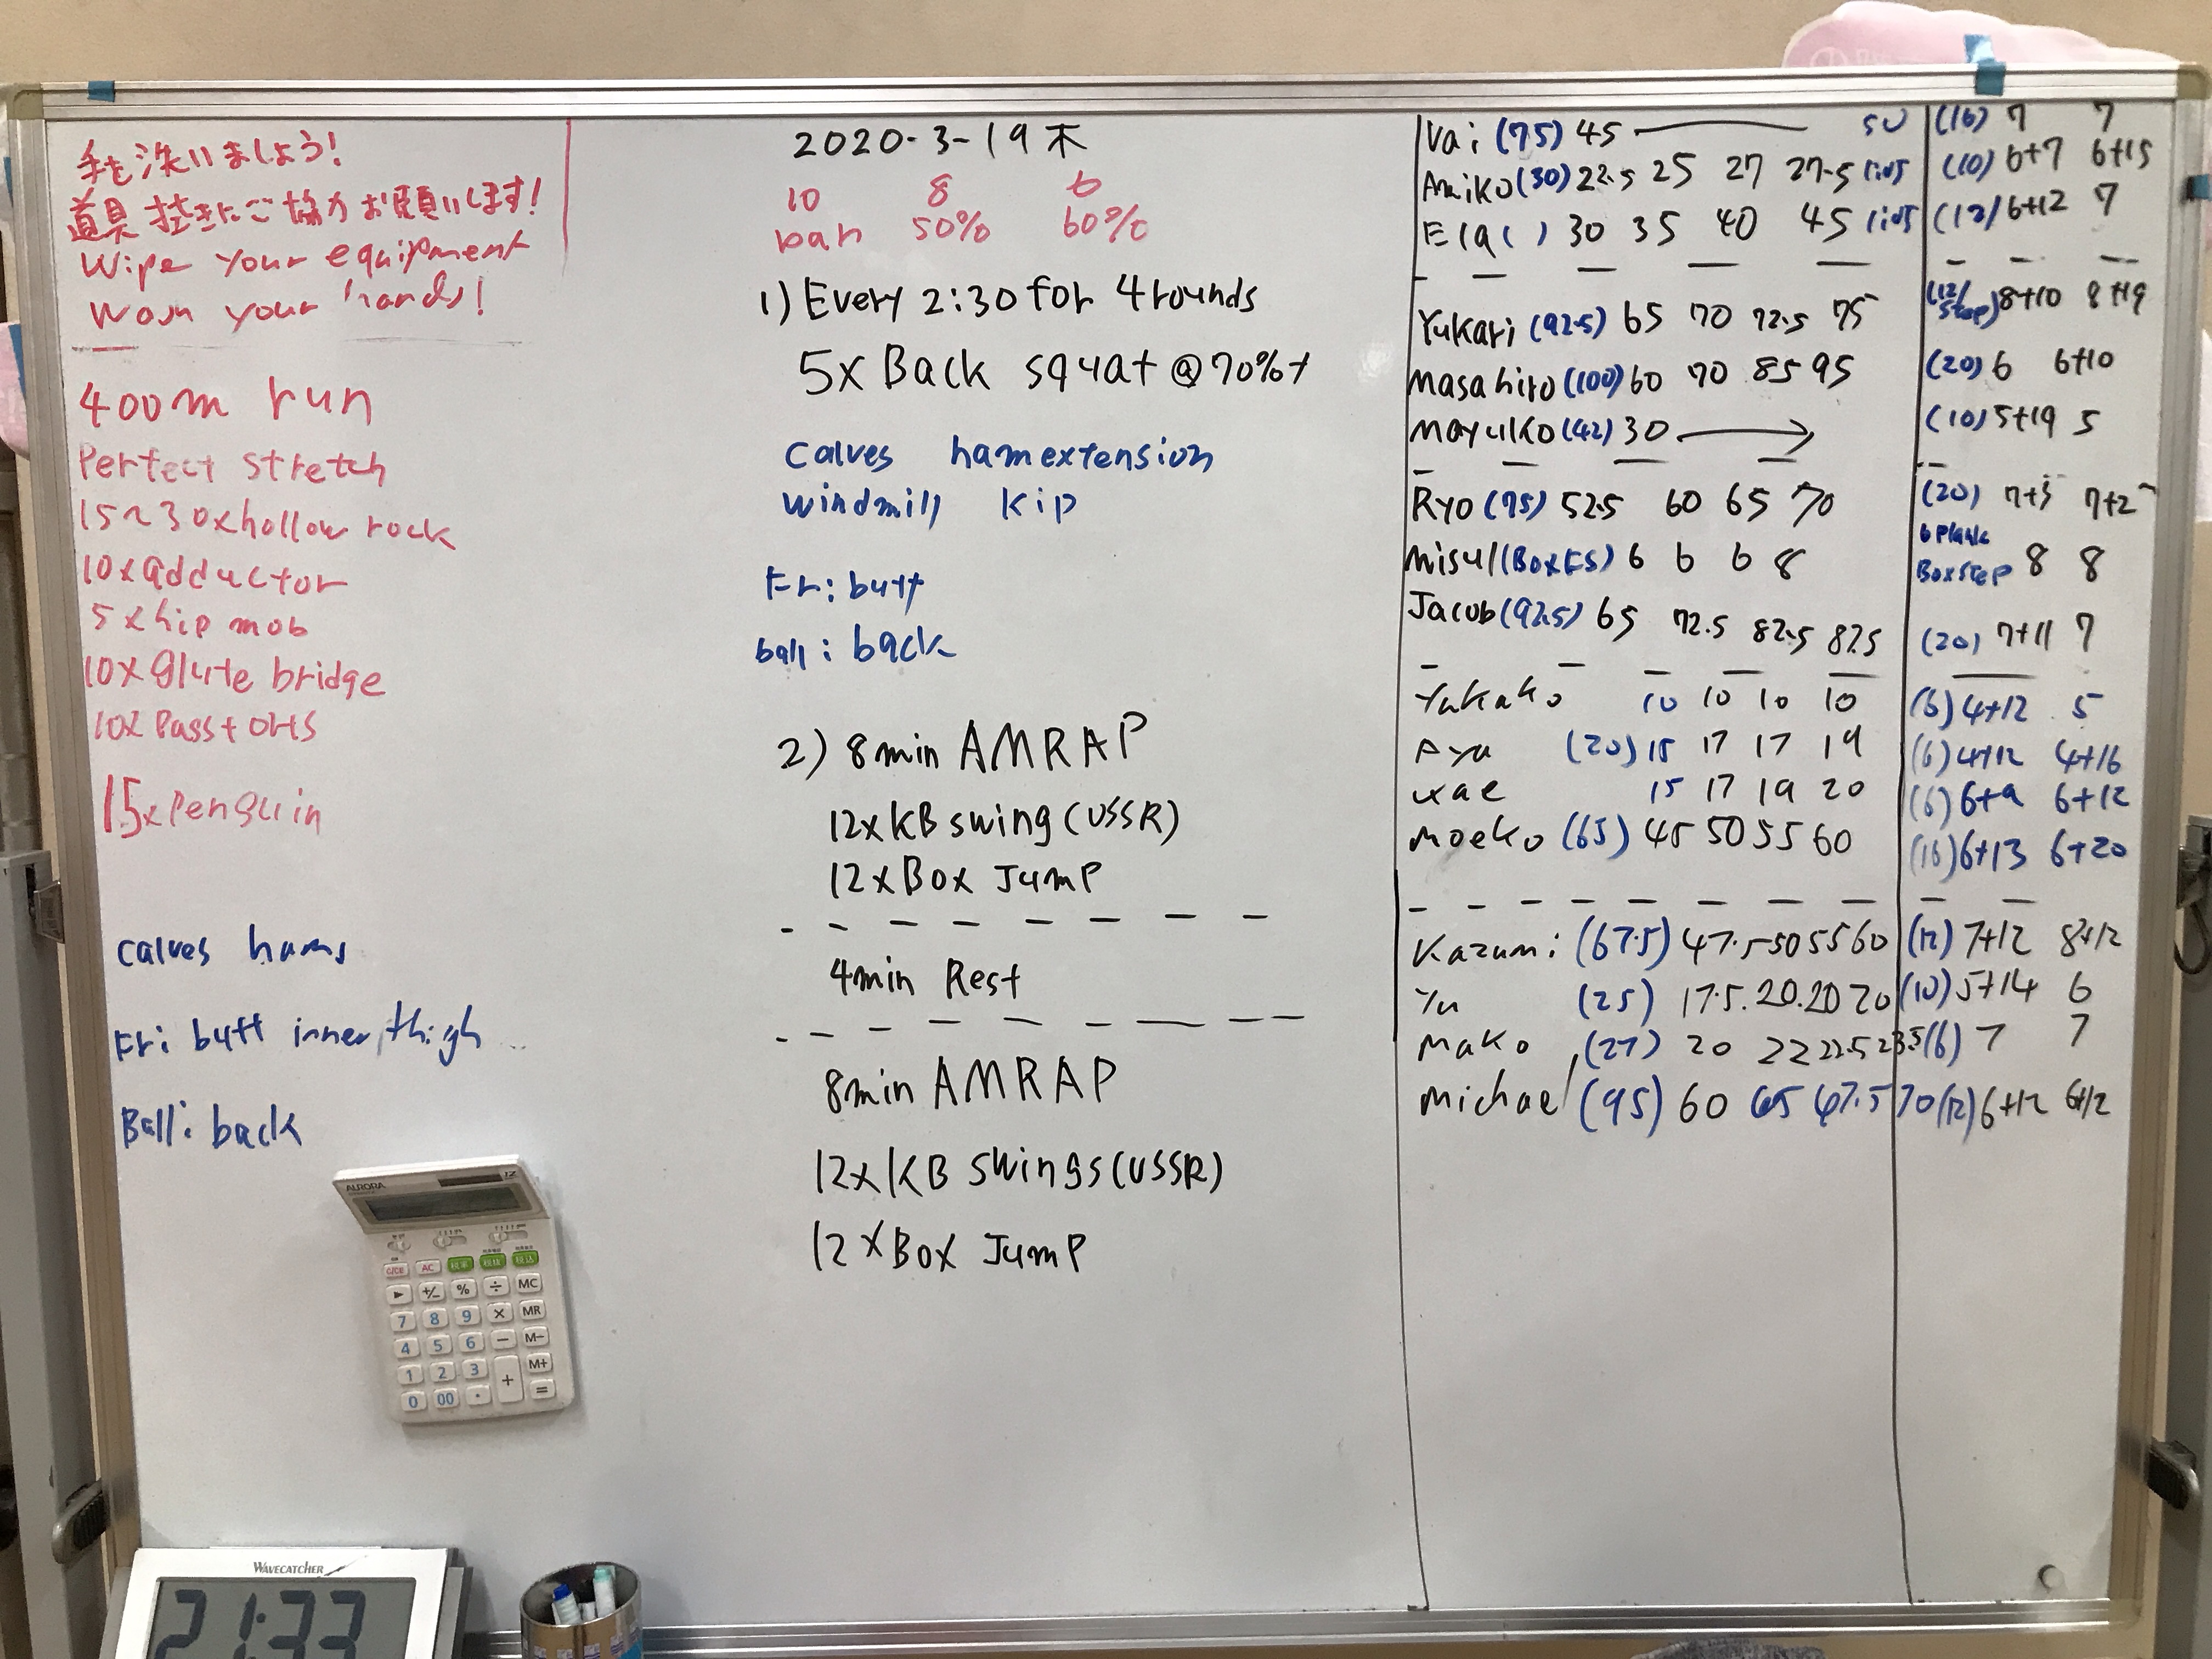 手を洗いましょう!
道具拭きにご協力お願いします!
Wipe your equipment
Wash your hands!
400m run
Perfect stretch
15~30xhollow rock
10xadductor
5xhip mob
10xglute bridge
10xPass+OHS
15xPenguin
calves hams
Fr: butt inner thigh
Ball: back
2020-3-19 木
10 8 6
bar 50% 60%
1) Every 2:30 for 4 rounds
5x Back squat @70%+
calves hamextension
windmill kip
Fr: butt
ball: back
2) 8min AMRAP
12xKB swing (USSR)
12xBox Jump
4min Rest
8min AMRAP
12xKB swings (USSR)
12xBox Jump
Vai (75) 45 50 (16) 7 7
Amiko (30) 22.5 25 27 27.5 (10) 6+7 6+15
30 35 40 45 (12) 6+12 7
Yukari (92.5) 65 70 72.5 75 (12/step) 8+10 8+19
Masahiro (100) 60 70 85 95 (20) 6 6+10
Mayuko (42) 30 → (10) 5+19 5
Ryo (75) 52.5 60 65 70 (20) 7+3 7+2
(Box FS) 6 6 6 8 6 plank Box step 8 8
Jacob (92.5) 65 72.5 82.5 87.5 (20) 7+11 7
Yukako 10 10 10 10 (6) 4+12 5
Aya (20) 15 17 17 19 (6) 4+12 4+16
15 17 19 20 (6) 6+9 6+12
Moeko (65) 45 50 55 60 (16) 6+13 6+20
Kazumi (67.5) 47.5 50 55 60 (12) 7+12 8+12
Yu (25) 17.5. 20. 20 20 (10) 5+14 6
Mako (27) 20 22 22.5 23.5 (6) 7 7
Michael (95) 60 65 67.5 70 (12) 6+12 6+12
AURORA
12
C/CE AC
+/- % ÷ MC
7 8 9 × MR
4 5 6 − M−
1 2 3 + M+
0 00 · =
WAVECATCHER
21:33